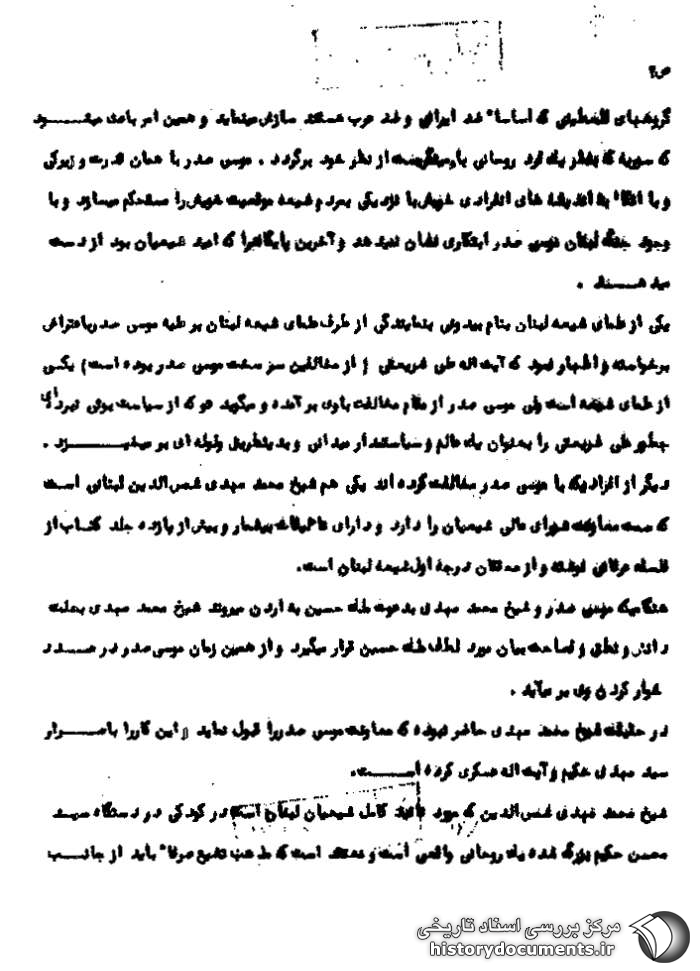 ص۲
گروههای فلسطینی که اساسا" ضد ایرانی و ضد عرب هستند سازش مینماید و همین امر باعث میشود
که سوریه که بنظر یک فرد روحانی باو مینگریست از نظر خود برگردد . موسی صدر با همان قدرت و زیرکی
و با اتکاء به اندیشه های انفرادی خویش با نزدیکی بمردم شیعه موقعیت خویش را مستحکم میسازد و با
وجود جنگ لبنان موسی صدر ابتکاری نشان نمیدهد و آخرین پایگاهی را که امید شیعیان بود از دست
میدهند .
یکی از علمای شیعه لبنان بنام بیدونی بنمایندگی از طرف علمای شیعه لبنان بر علیه موسی صدر باعتراض
برخواسته و اظهار نمود که آیت اله علی شریعتی ( از مخالفین سر سخت موسی صدر بوده است) یکی
از علمای شیعه است ولی موسی صدر از مقام مخالفت باوی بر آمده و میگوید او که از سیاست بوئی نبرده ای
چطور علی شریعتی را بعنوان یک عالم و سیاستمدار میدانی و بدینطریق ولوله ای بر میخیزد .
دیگر از افرادیکه با موسی صدر مخالفت کرده اند یکی هم شیخ محمد مهدی شمس الدین لبنانی است
که سمت معاونت شورای عالی شیعیان را دارد و دارای تالیفات بیشمار و بیش از یازده جلد کتاب از
فلسفه عرفانی نوشته و از محققان درجه اول شیعه لبنان است.
هنگامیکه موسی صدر و شیخ محمد مهدی بدعوت ملک حسین به اردن میروند شیخ محمد مهدی بعلت
دانش و نطق و فصاحت بیان مورد لطف ملک حسین قرار میگیرد و از همین زمان موسی صدر در صدد
خوار کردن وی بر میآید .
در حقیقت شیخ محمد مهدی حاضر نبوده که معاونت موسی صدر را قبول نماید و این کار را با اصرار
سید مهدی حکیم و آیت اله عسکری کرده است.
شیخ محمد مهدی شمس الدین که مورد تائید کامل شیعیان لبنان است در کودکی در دستگاه سید
محسن حکیم بزرگ شده یک روحانی واقعی است و معتقد است که مذهب تشیع صرفا" باید از جانب
مرکز بررسی اسناد تاریخی
historydocuments.ir